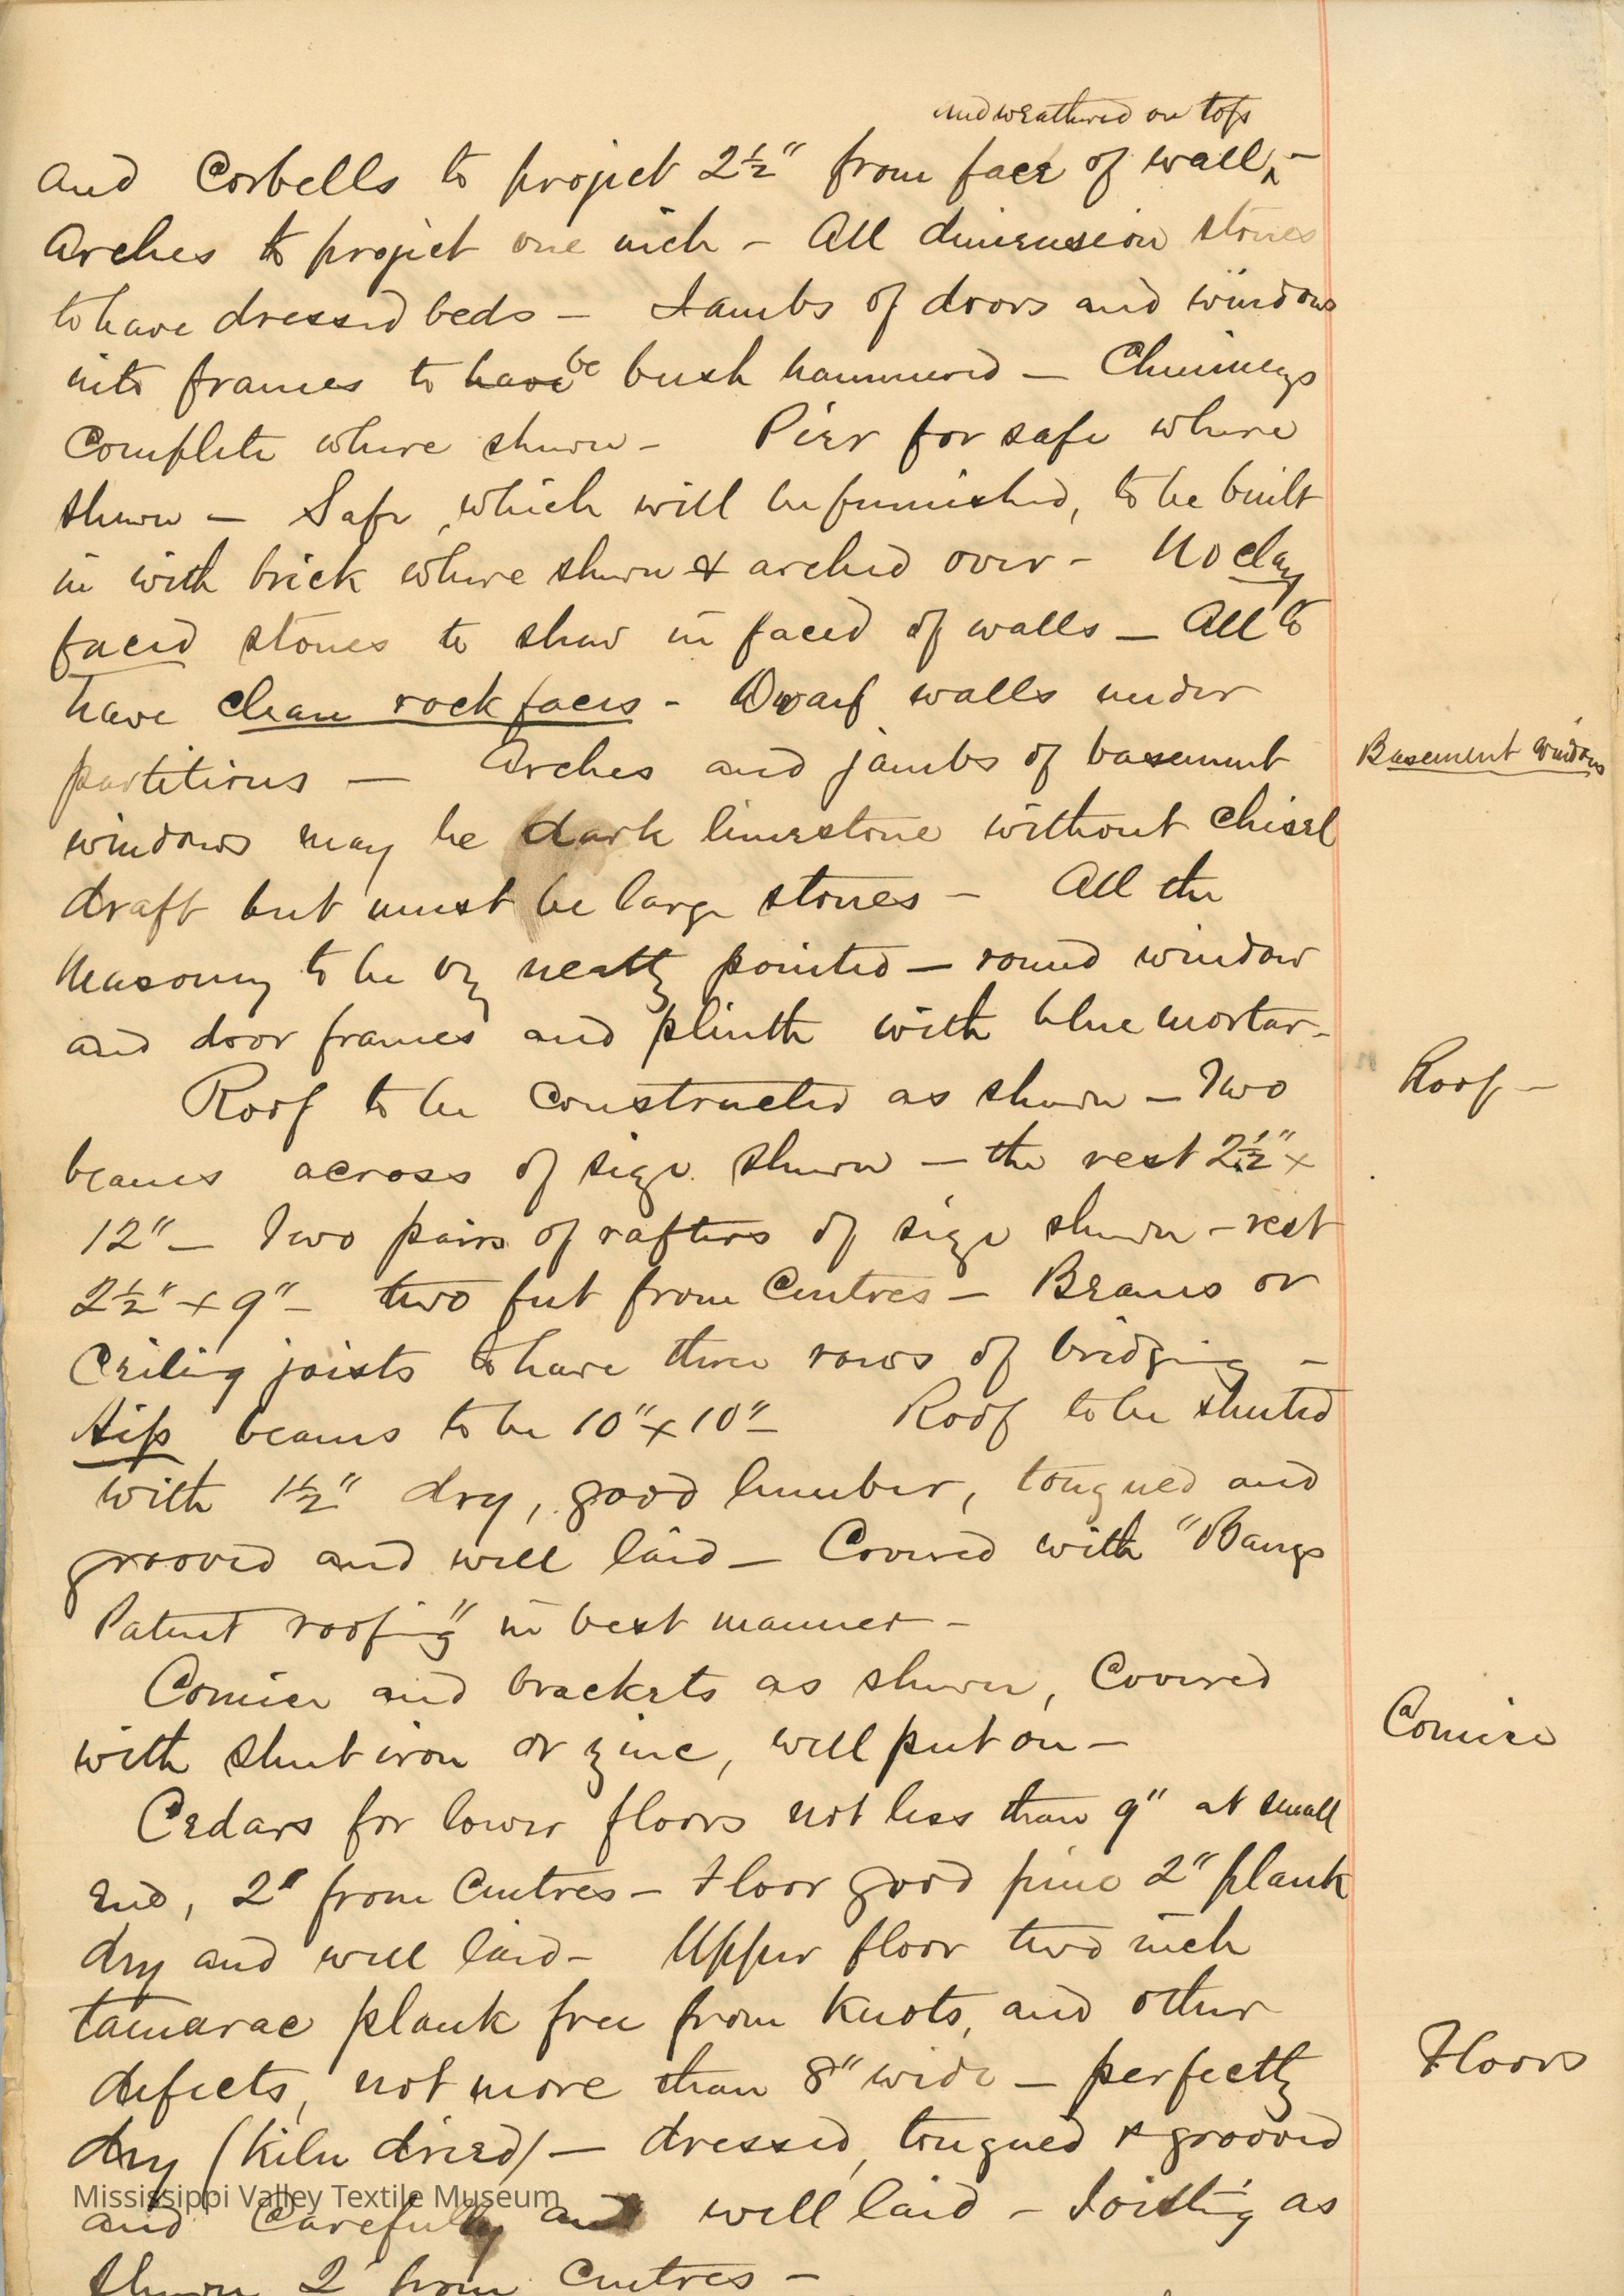 and weathered on tops
and Corbells to project 2½" from face of wall, –
Arches to project one inch – All dimension stones
to have dressed beds – Jambs of doors and windows
into frames to have be bush hammered – Chimneys
Complete where shown – Pier for safe where
shown – Safe, which will be furnished, to be built
in with brick where shown & arched over – No clay
faced stones to show in faced of walls – All to
have clean rock faces – Dwarf walls under
partitions – Arches and jambs of basement
Basement windows
windows may be dark limestone without chisel
draft but must be large stones – All the
Masonry to be neatly pointed – round window
and door frames and plinth with blue mortar –
Roof to be constructed as shown – Two
Roof –
beams across of size shown – the rest 2½" x
12" – Two pairs of rafters of size shown – rest
2½" x 9" – two feet from Centres – Beams or
Ceiling joists to have three rows of bridging –
Hip beams to be 10" x 10" – Roof to be sheeted
with 1½" dry, good lumber, tongued and
grooved and well laid – Covered with "Bangs
Patent roofing" in best manner –
Cornice and brackets as shown, Covered
Cornice
with sheet iron or zinc, well put on –
Cedars for lower floors not less than 9" at small
End, 2' from Centres – Floor good pine 2" plank
dry and well laid – Upper floor two inch
tamarac plank free from knots, and other
Floors
defects, not more than 8" wide – perfectly
dry (kiln dried) – dressed, tongued & grooved
and Carefully and well laid – Joisting as
shown 2' from Centres –
Mississippi Valley Textile Museum